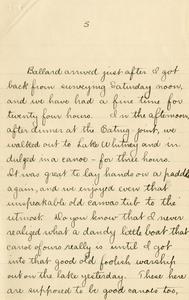 5
Ballard arrived just after I got
back from surveying Saturday noon,
and we have had a fine time for
twenty four hours. In the afternoon,
after dinner at the Eating joint, we
walked out to Lake Whitney and in-
dulged in a canoe - for three hours.
It was great to lay hands on a paddle
again, and we enjoyed even that
unspeakable old canvas tub to the
utmost. Do you know that I never
realized what a dandy little boat that
canoe of ours really is until I got
into that good old foolish warship
out on the lake yesterday. These here
are supposed to be good canoes too,